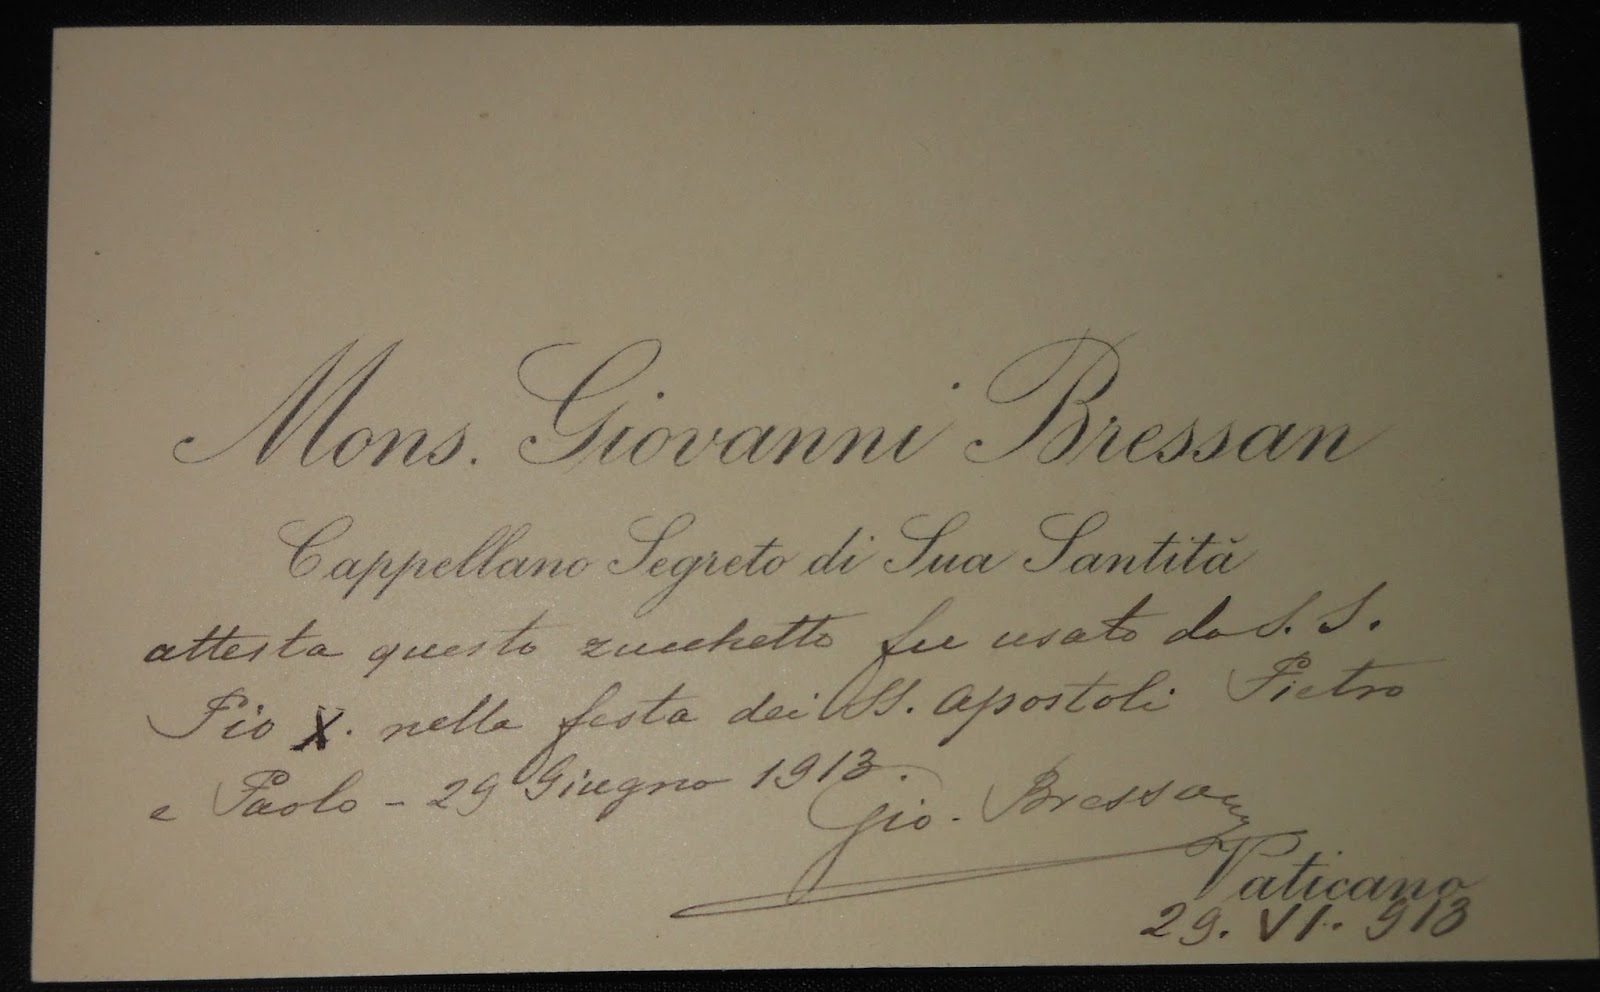 Mons. Giovanni Bressan
Cappellano Segreto di Sua Santità
attesta questo zucchetto fu usato da S. S.
Pio X. nella festa dei SS. Apostoli Pietro
e Paolo - 29 Giugno 1913.
Gio. Bressan
Vaticano
29. VI. 913